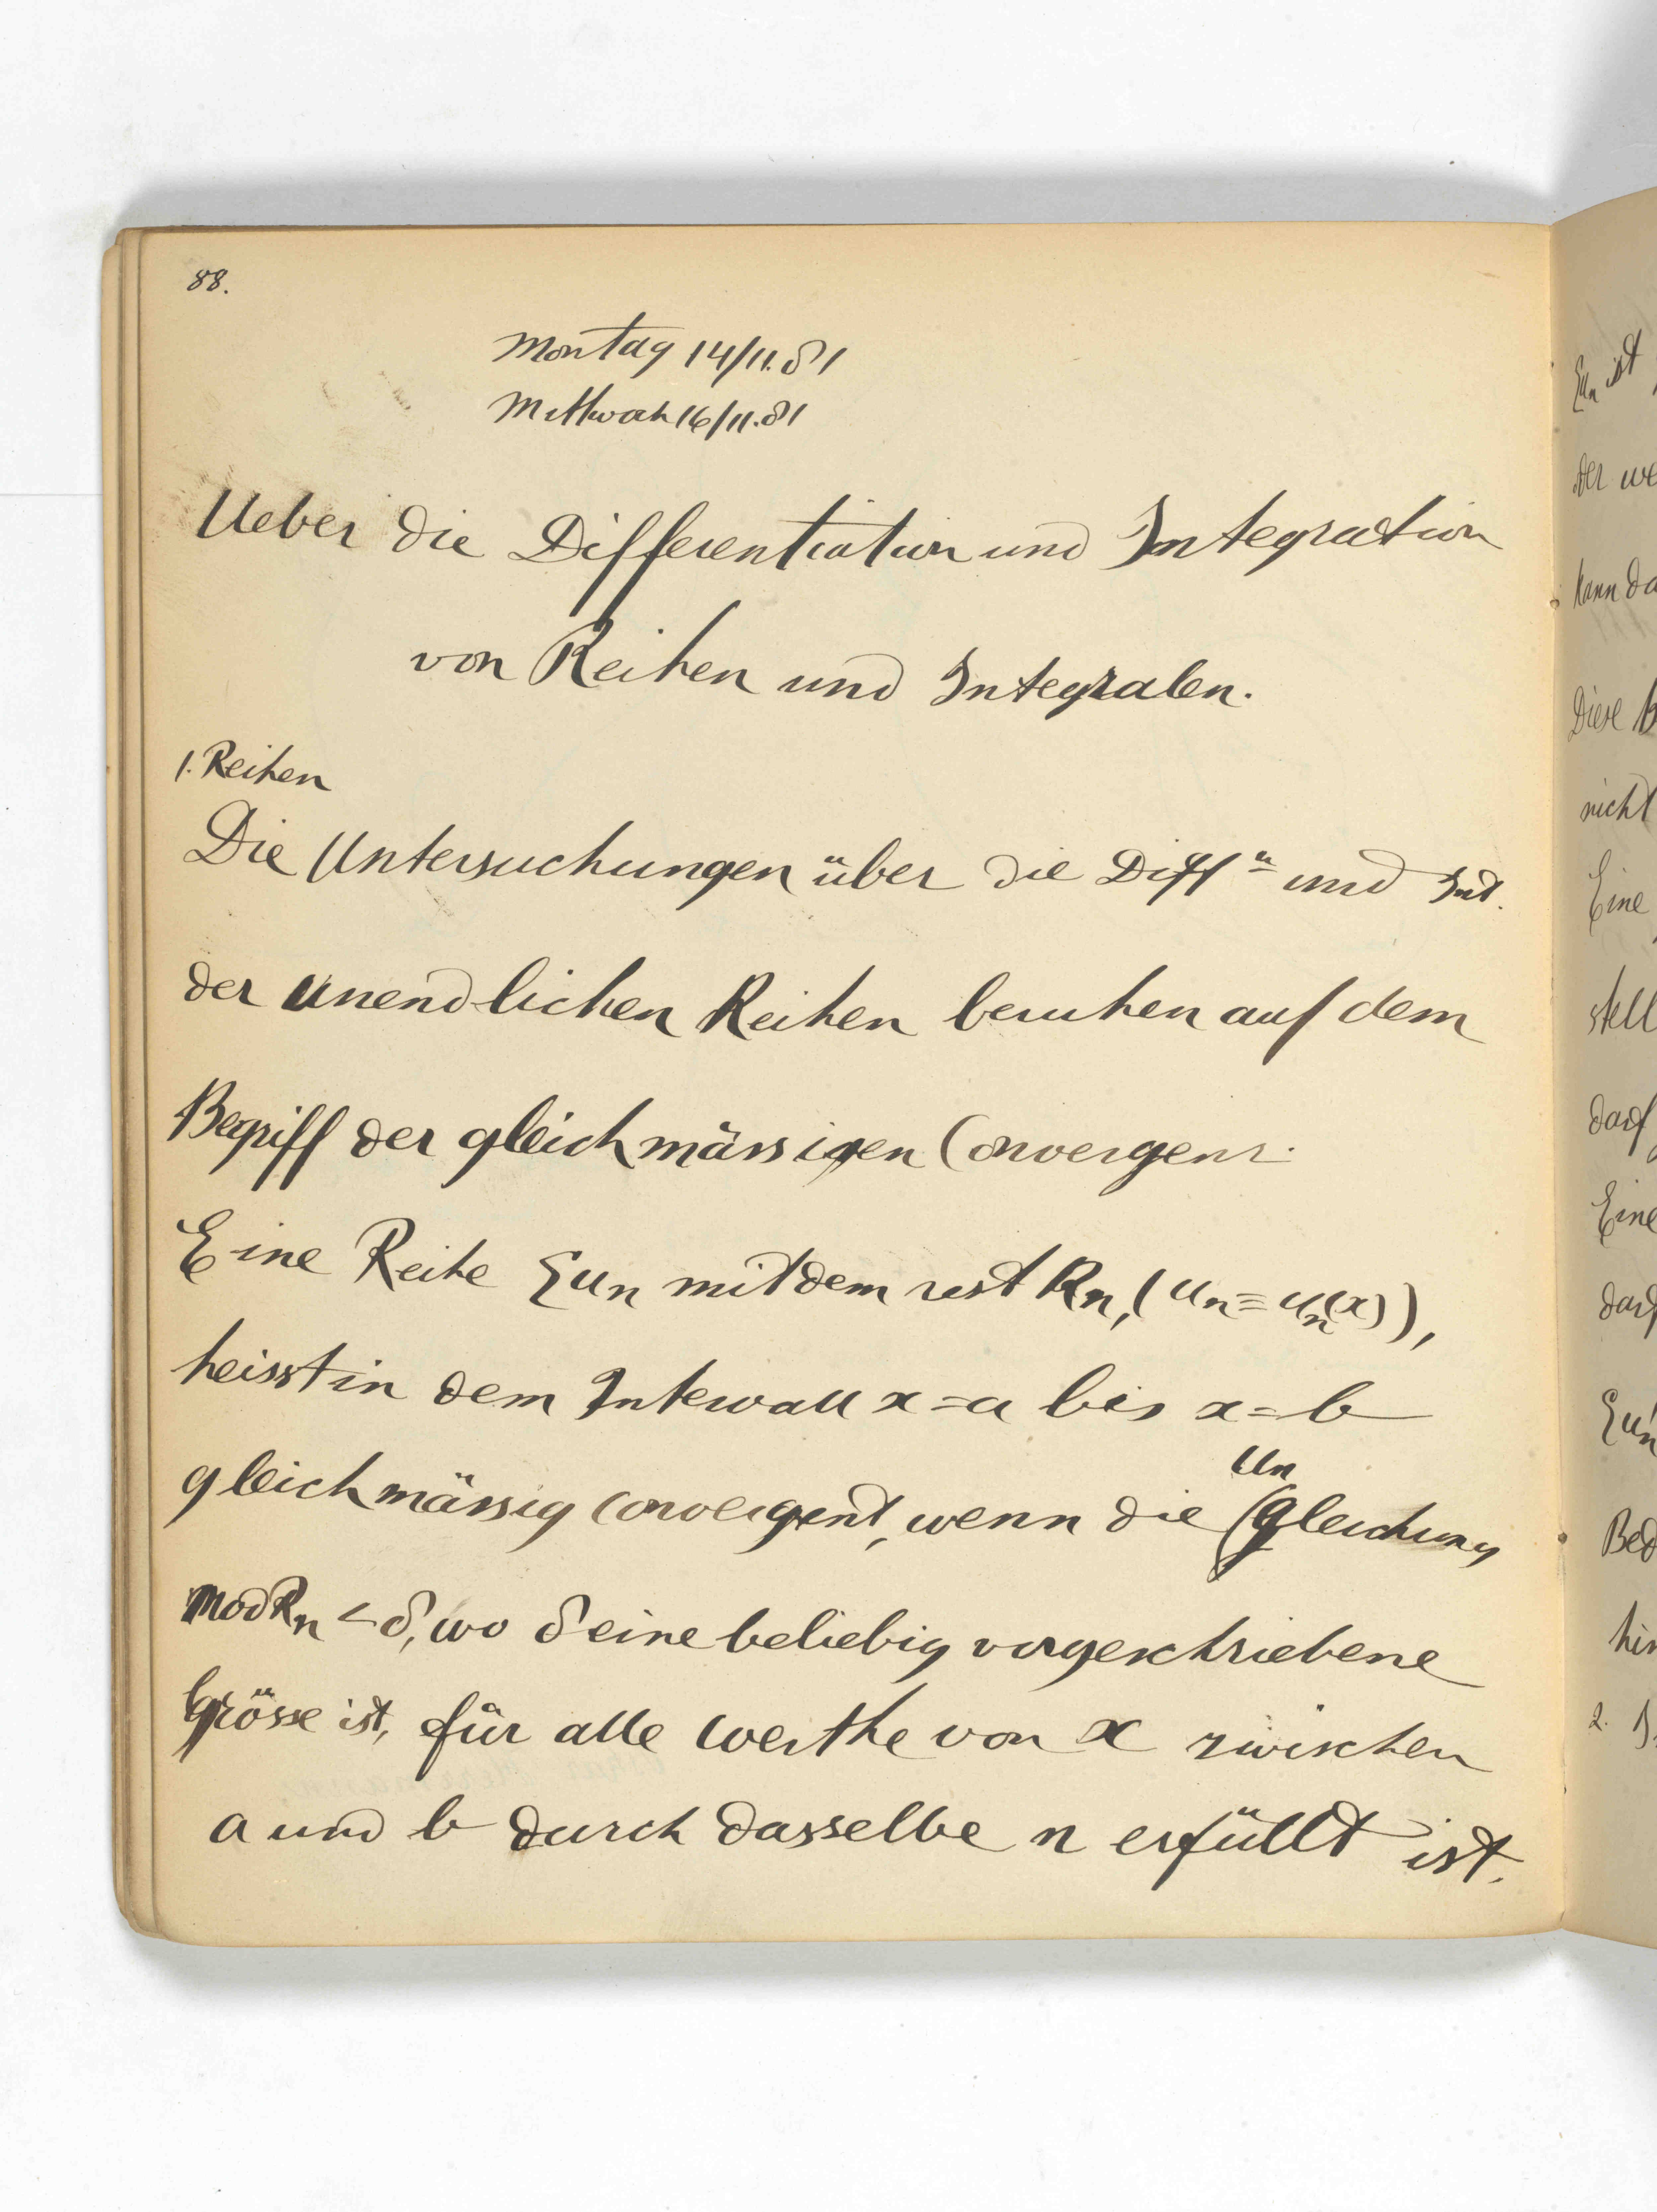 88.
Montag 14/11.81
Mittwoch 16/11.81
Ueber die Differentiation und Integration
von Reihen und Integralen.
1. Reihen
Die Untersuchungen über die Diffⁿ und Int.
der unendlichen Reihen beruhen auf dem
Begriff der gleichmässigen Convergenz.
Eine Reihe Σun mit dem rest Rn, (un = un(x)),
heisst in dem Intervall x = a bis x = b
gleichmässig convergent, wenn die Ungleichung
mod Rn < δ, wo δ eine beliebig vorgeschriebene
Grösse ist, für alle Werthe von x zwischen
a und b durch dasselbe n erfüllt ist.
Σun ist
der we
kann da
Diese b
nicht
Eine
stell
darf
Eine
darf
Σun
Bed
hin
2. I